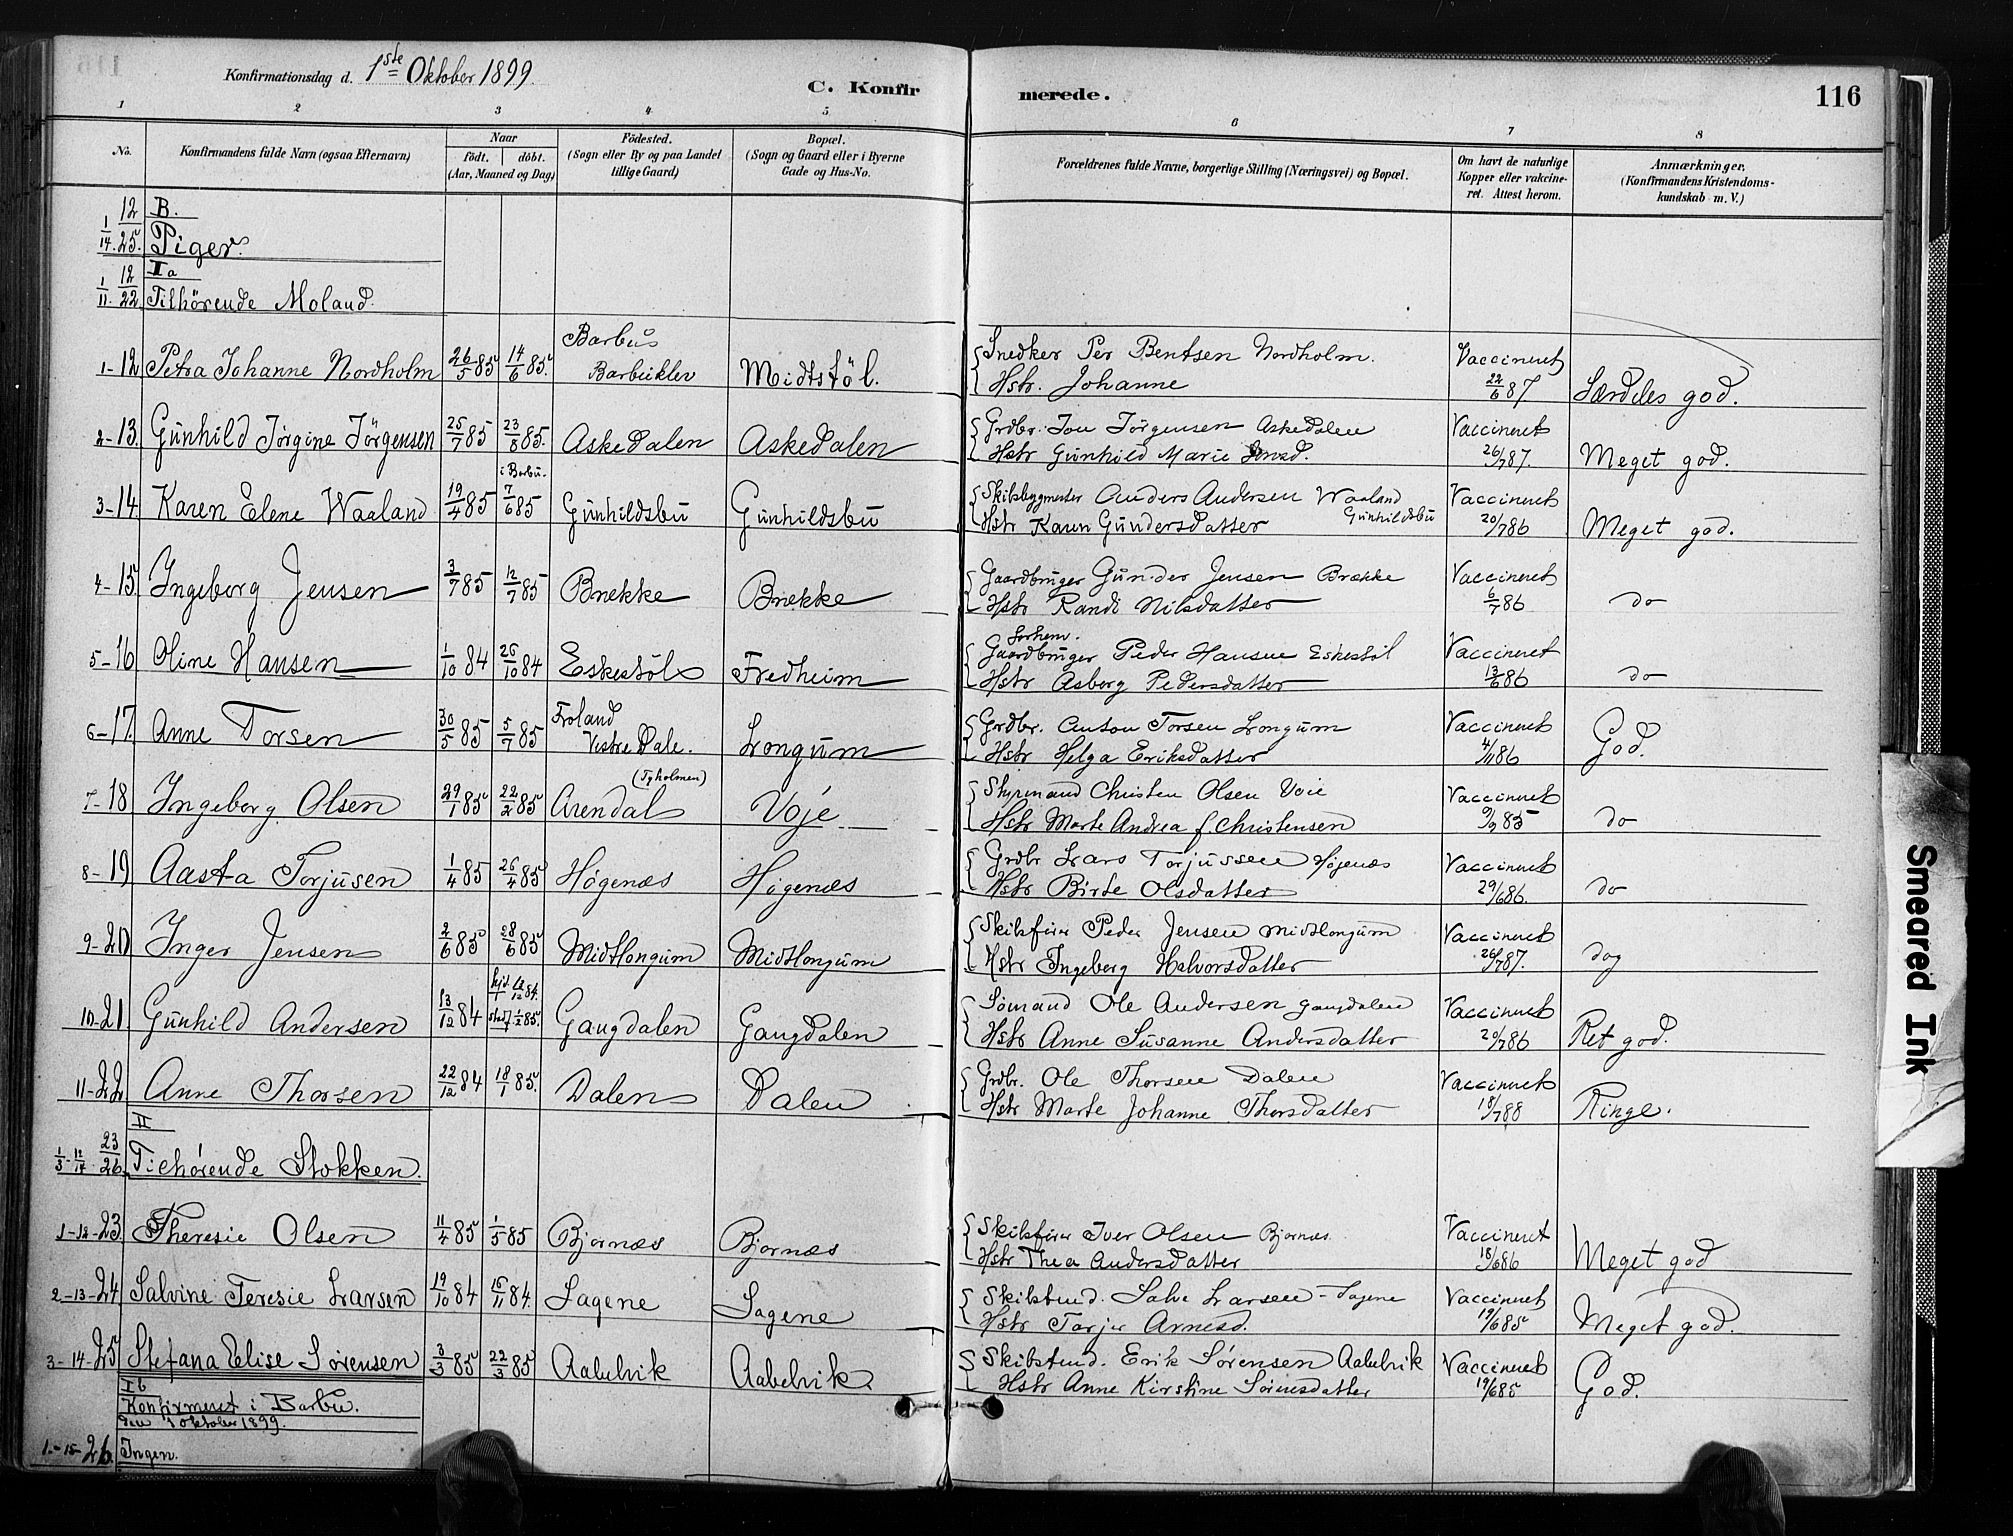 116
Konfirmationsdag d. 1ste Oktober 1899
C. Konfirmerede.
1 2 3 4 5 6 7 8
No.
Konfirmandens fulde Navn (ogsaa Efternavn)
Naar
født. døbt.
(Aar, Maaned og Dag)
Fødested.
(Sogn eller By og paa Landet
tillige Gaard)
Bopæl.
(Sogn og Gaard eller i Byerne
Gade og Hus-No.
Forældrenes fulde Navne, borgerlige Stilling (Næringsvei) og Bopæl.
Om havt de naturlige
Kopper eller vakcine-
ret. Attest herom.
Anmærkninger,
(Konfirmandens Kristendoms-
kundskab m. V.)
12 B.
1/14 25. Piger.
12 Ia
1/11 22. Tilhørende Moland.
1-12 Petra Johanne Nordholm 26/5 85 14/6 85. Barbu Barbuklev Midtstøl. Snedker Per Bentsen Nordholm. Vaccineret
Hstr. Johanne 22/6 87 Særdeles god.
2-13. Gunhild Jørgine Jørgensen 25/7 85 23/8 85. Askedalen Askedalen Grdbr. Jon Jørgensen Askedalen Vaccineret
Hstr Gunhild Marie 26/7 87. Meget god.
3-14. Karen Elene Waaland 19/4 85 i Barbu. 7/6 85 Gunhildsbu Gunhildsbu Skibsbygmester Anders Andersen Waaland Vaccineret
Hstr Karen Gundersdatter Gunhildsbu 20/7 86 Meget god.
4-15. Ingeborg Jensen 3/7 85 12/7 85 Brekke Brekke Gaardbruger Gunder Jensen Brække Vaccineret
Hstr Randi Nilsdatter 6/7 86 do
5-16 Oline Hansen 1/10 84 26/10 84 Eskestøl Fredheim Gaardbruger Peder Hansen Eskestøl Vaccineret
Hstr Asborg Pedersdatter 13/6 86 do
6-17. Anne Torsen 30/5 85 5/7 85 Froland Vestre Dale. Longum Grdbr. Anton Torsen Longum Vaccineret
Hstr Helga Eriksdatter 4/11 86 God.
7-18 Ingeborg Olsen 29/1 85 22/2 85 Arendal (Tyholmen) Voje Styrmand Christen Olsen Voie Vaccineret
Hstr Marte Andrea f. Christensen 9/9 85 do
8-19 Aasta Torjusen 1/4 85 26/4 85 Høgenæs Høgenæs Grdbr Lars Torjussen Høgenæs Vaccineret
Hstr Birte Olsdatter 29/6 86. do
9-20 Inger Jensen 2/6 85 28/6 85 Midtlongum Midtlongum Skibsfører Peder Jensen Midtlongum Vaccineret
Hstr Ingeborg Halvorsdatter 26/7 87.
10-21 Gunhild Andersen 13/12 84 Gaugdalen Gaugdalen Sømand Ole Andersen Gaugdalen Vaccineret
Hstr Anne Susanne Andersdatter 20/7 86 Ret god.
11-22 Anne Thorsen 22/12 84 18/1 85. Dalen Dalen Grdbr. Ole Thorsen Dalen Vaccineret
Hstr Marte Johanne Thorsdatter 18/7 88 Ringe.
II
1/3 - 12/14 23/26 Tilhørende Stokken.
1-12-23. Theresie Olsen 11/4 85 1/5 85 Bjørnæs Bjørnæs Skibsfører Iver Olsen Bjørnæs Vaccineret
Hstr Thea Andersdatter 18/6 86 Meget god
2-13-24 Salvine Teresie Larsen 19/10 84 16/11 84. Sagene Sagene Skibstmd. Salve Larsen - Sagene Vaccineret
Hstr Torjer Arnesd. 19/6 85 Meget god.
3-14-25 Stefana Elise Sørensen 3/3 85 22/3 85 Aabelvik Aabelvik. Skibstmd. Erik Sørensen Aabelvik Vaccineret
Hstr Anne Kirstine Sørensdatter 19/6 85 God.
Ib
Konfirmeret i Barbu.
den 1 Oktober 1899.
1.-15-26 Ingen.
Smeared Ink